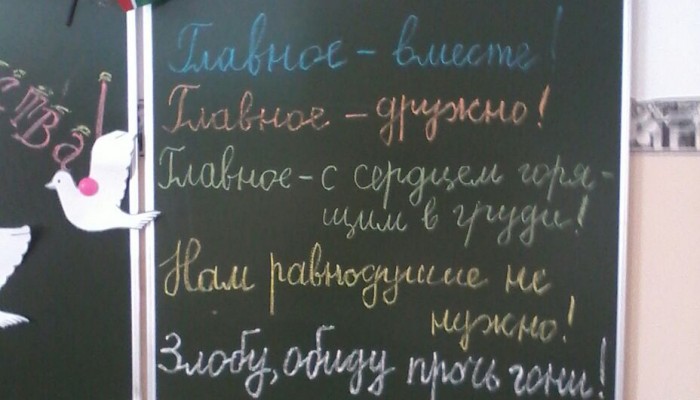 Главное - вместе!
Главное - дружно!
Главное - с сердцем горя-
щим в груди!
Нам равнодушие не
нужно!
Злобу, обиду прочь гони!